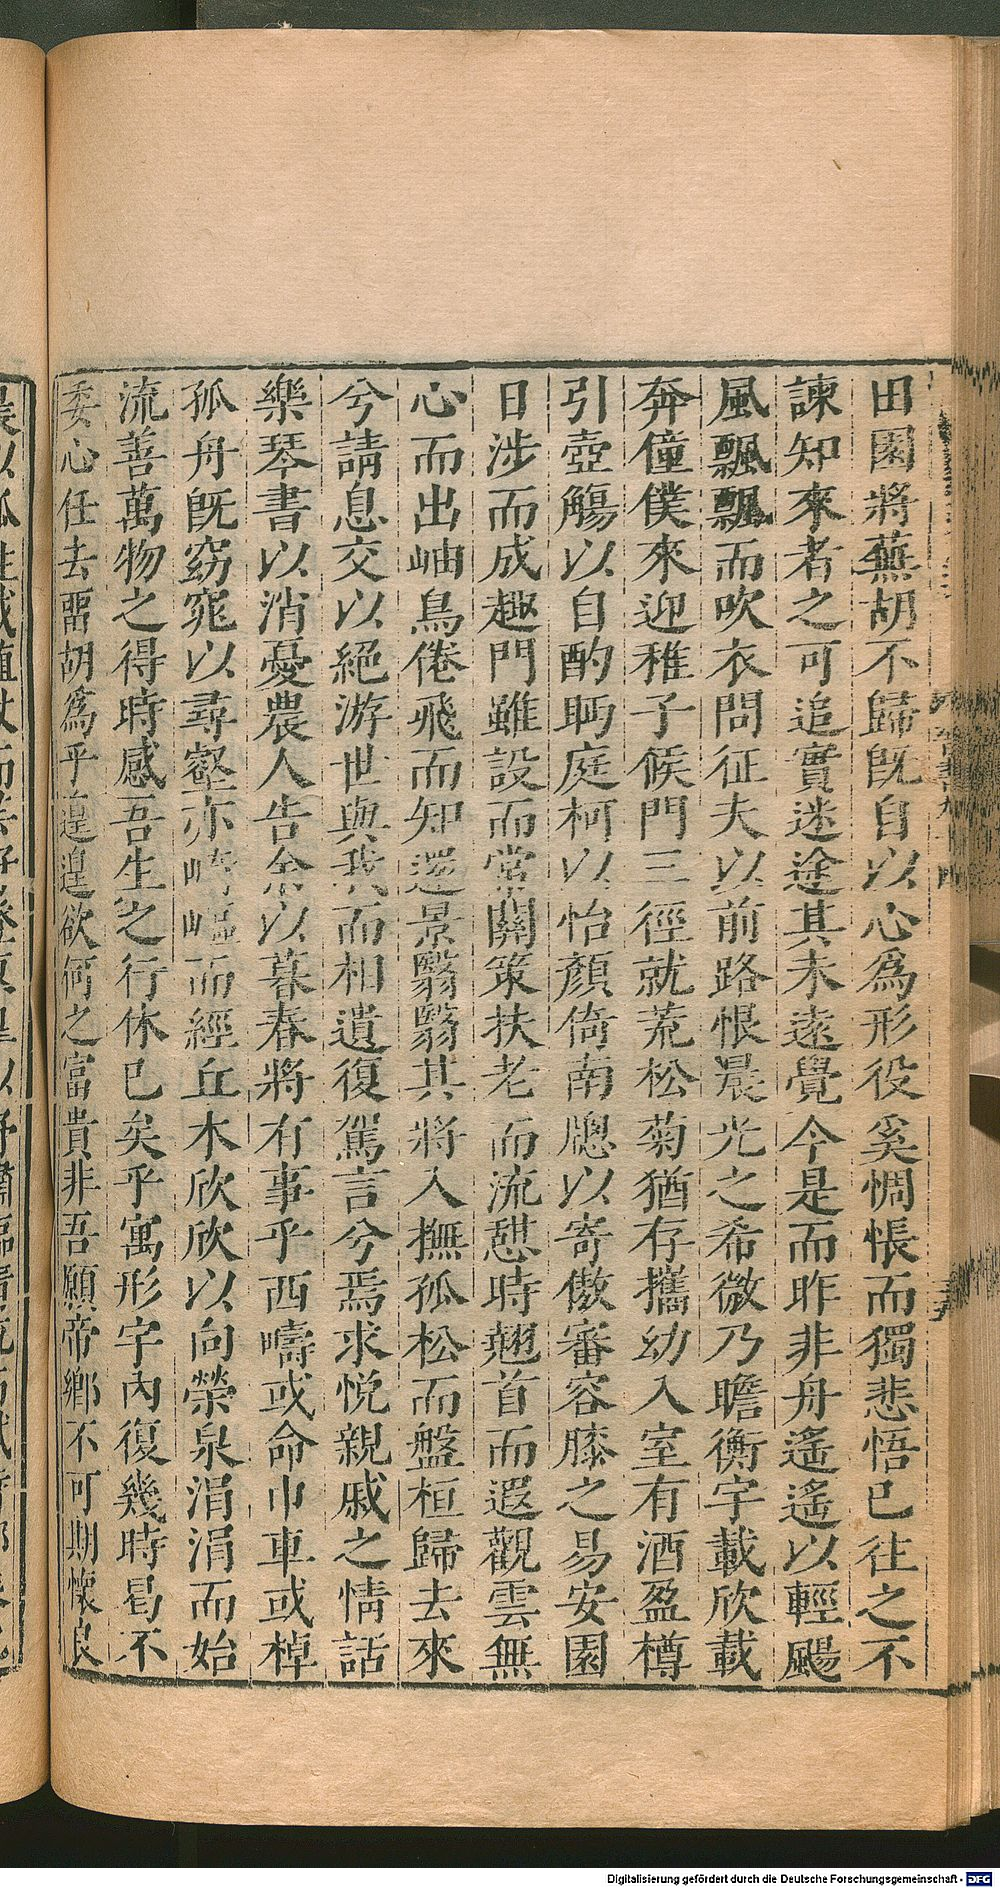 田園將蕪胡不歸旣自以心爲形役奚惆悵而獨悲悟已往之不
諫知來者之可追實迷途其未遠覺今是而昨非舟遙遙以輕颺
風飄飄而吹衣問征夫以前路恨晨光之希微乃瞻衡宇載欣載
奔僮僕來迎稚子候門三徑就荒松菊猶存攜幼入室有酒盈樽
引壺觴以自酌眄庭柯以怡顏倚南牕以寄傲審容膝之易安園
日涉而成趣門雖設而常關策扶老而流憩時翹首而遐觀雲無
心而出岫鳥倦飛而知還景翳翳其將入撫孤松而盤桓歸去來
兮請息交以絕游世與我而相遺復駕言兮焉求悅親戚之情話
樂琴書以消憂農人告余以暮春將有事乎西疇或命巾車或棹
孤舟旣窈窕以尋壑亦崎嶇而經丘木欣欣以向榮泉涓涓而始
流善萬物之得時感吾生之行休已矣乎寓形宇內復幾時曷不
委心任去畱胡爲乎遑遑欲何之富貴非吾願帝鄉不可期懷良
Digitalisierung gefördert durch die Deutsche Forschungsgemeinschaft - DFG